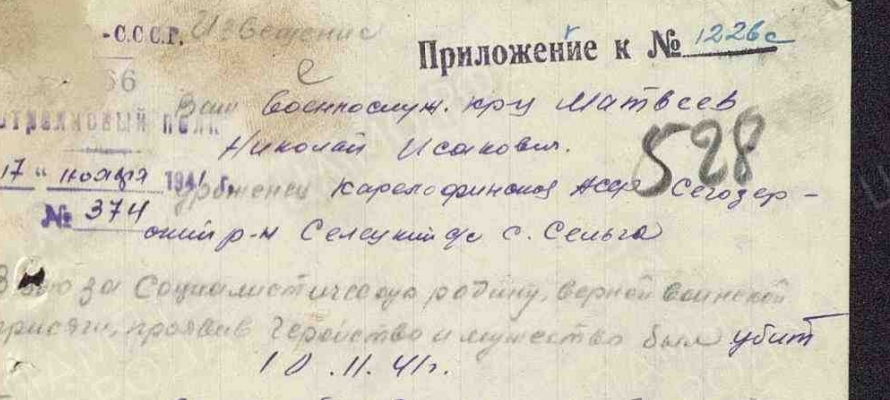 -С.С.С.Р. Извещение
Приложение к № 1226с
66
Ваш военнослуж. крц Матвеев
стрелковый полк
Николай Исакович.
528
17 " ноября 1941 г.
уроженец Карелофинской Сегозер-
№ 374
ский р-н Селецкий с. Сельга
В бою за Социалистическую родину, верной воинской
присяги, проявив геройство и мужество был убит
10.11.41г.